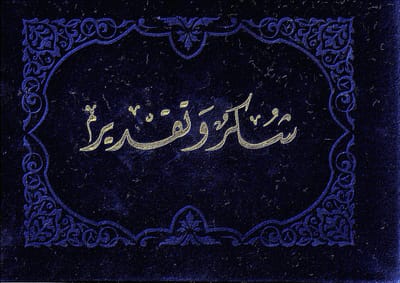 شُكرٌ وَتقدير